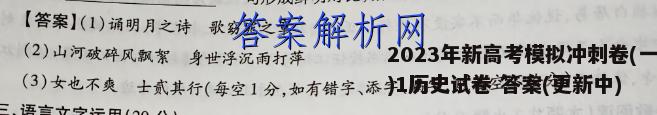 【答案】(1)诵明月之诗 歌窈
答案解析网
(2)山河破碎风飘絮 身世浮沉雨打萍
2023年新高考模拟冲刺卷(一
)1历史试卷 答案(更新中)
(3)女也不爽 士贰其行(每空1分,如有错字、添
三、语言文字运用(20分)